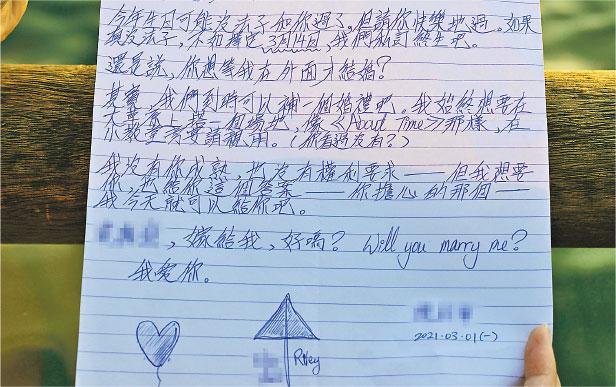 今年生日可能沒法子和你過了。但請你快樂地過。如果
真沒法子，不如擇定3月14日，我們私訂終生吧。
還是說，你想等我在外面才結婚？
其實，我們到時可以補一個婚禮吧。我始終想要在
大草原上搭一個場地，像《About Time》那樣，在
小教堂
（你看過沒有？）
我沒有你成熟，也沒有權利要求——但我想要
你，也給你這個答案——你擔心的那個——
我今天就可以給你吧。
，嫁給我，好嗎？ Will you marry me?
我愛你。
Riley
2021.03.01(一)